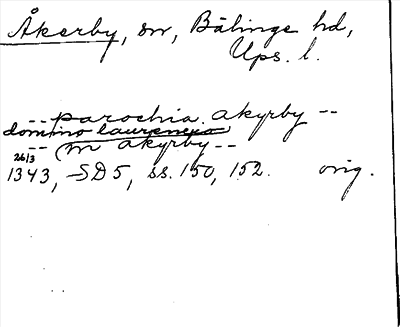 Åkerby, sn, Bälinge hd,
Ups. l.
-- parochia akyrby --
domino laurencio
-- in akyrby --
26/3
1343, SD 5, ss. 150, 152. orig.